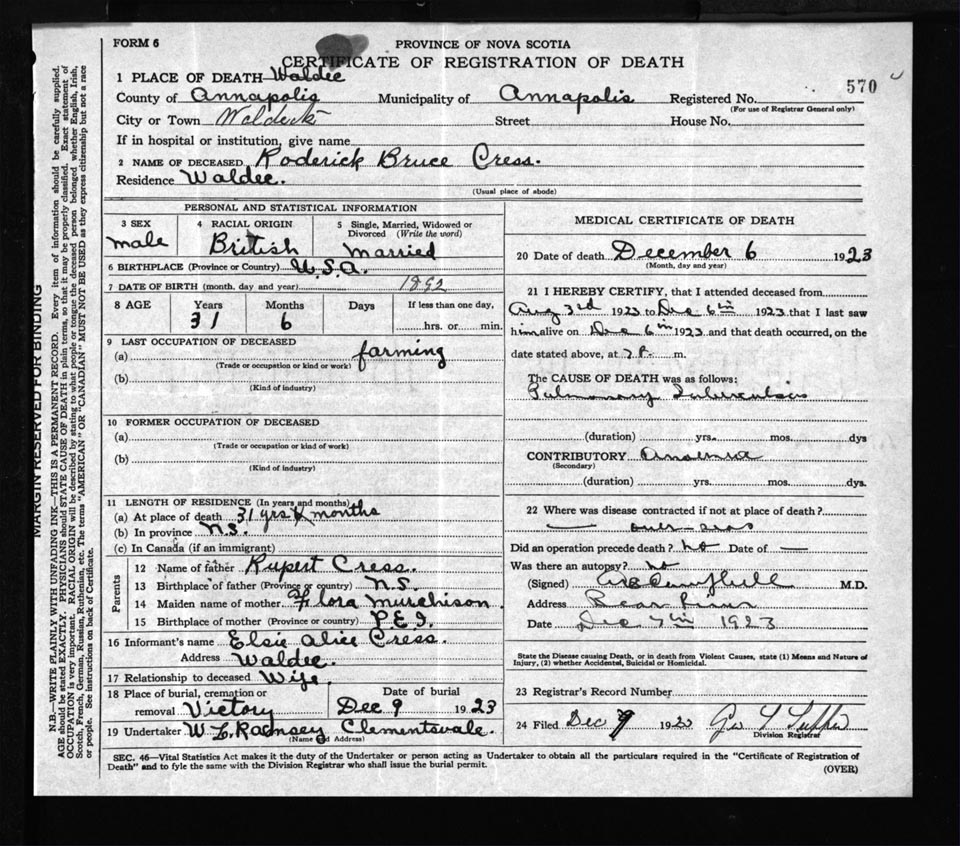 FORM 6
PROVINCE OF NOVA SCOTIA
CERTIFICATE OF REGISTRATION OF DEATH
570
1 PLACE OF DEATH Waldec
County of Annapolis Municipality of Annapolis Registered No.
(For use of Registrar General only)
City or Town Waldeck Street House No.
If in hospital or institution, give name
2 NAME OF DECEASED Roderick Bruce Cress.
Residence Waldec.
(Usual place of abode)
PERSONAL AND STATISTICAL INFORMATION
3 SEX 4 RACIAL ORIGIN 5 Single, Married, Widowed or Divorced (Write the word)
male British married
6 BIRTHPLACE (Province or Country) U.S.A.
7 DATE OF BIRTH (month, day and year) 1892
8 AGE Years Months Days If less than one day,
31 6 hrs. or min.
9 LAST OCCUPATION OF DECEASED
(a) farming
(Trade or occupation or kind of work)
(b)
(Kind of industry)
10 FORMER OCCUPATION OF DECEASED
(a)
(Trade or occupation or kind of work)
(b)
(Kind of industry)
11 LENGTH OF RESIDENCE (In years and months)
(a) At place of death 31 yrs months
(b) In province N.S.
(c) In Canada (if an immigrant)
Parents
12 Name of father Rupert Cress.
13 Birthplace of father (Province or country) N.S.
14 Maiden name of mother Flora Murchison
15 Birthplace of mother (Province or country) P.E.I.
16 Informant's name Elsie Alice Cress.
Address Waldec.
17 Relationship to deceased Wife
18 Place of burial, cremation or Date of burial
removal Victory Dec 9 1923
19 Undertaker W L Ramsey Clementsvale.
(Name and Address)
MEDICAL CERTIFICATE OF DEATH
20 Date of death December 6 1923
(Month, day and year)
21 I HEREBY CERTIFY, that I attended deceased from
Aug 3rd 1923 to Dec 6th 1923 that I last saw
him alive on Dec 6th 1923 and that death occurred, on the
date stated above, at P. m.
The CAUSE OF DEATH was as follows:
Pulmonary Tuberculosis
(duration) yrs. mos. dys
CONTRIBUTORY Anaemia
(Secondary)
(duration) yrs. mos. dys.
22 Where was disease contracted if not at place of death?
— over-seas
Did an operation precede death? No Date of —
Was there an autopsy? No
(Signed) Campbell M.D.
Address Bear River
Date Dec 7th 1923
State the Disease causing Death, or in death from Violent Causes, state (1) Means and Nature of
Injury, (2) whether Accidental, Suicidal or Homicidal.
23 Registrar's Record Number
24 Filed Dec 9 1923 Geo L Tupper
Division Registrar
SEC. 46—Vital Statistics Act makes it the duty of the Undertaker or person acting as Undertaker to obtain all the particulars required in the "Certificate of Registration of
Death" and to fyle the same with the Division Registrar who shall issue the burial permit.
(OVER)
MARGIN RESERVED FOR BINDING
N.B.—WRITE PLAINLY WITH UNFADING INK—THIS IS A PERMANENT RECORD. Every item of information should be carefully supplied.
AGE should be stated EXACTLY. PHYSICIANS should STATE CAUSE OF DEATH in plain terms, so that it may be properly classified. Exact statement of
OCCUPATION is very important. RACIAL ORIGIN will be described by stating to what people or tongue the deceased person belonged whether English, Irish,
Scotch, French, German, Russian, Ruthenian, etc. The terms "AMERICAN" OR "CANADIAN" MUST NOT BE USED as they express citizenship but not a race
or people. See instructions on back of Certificate.